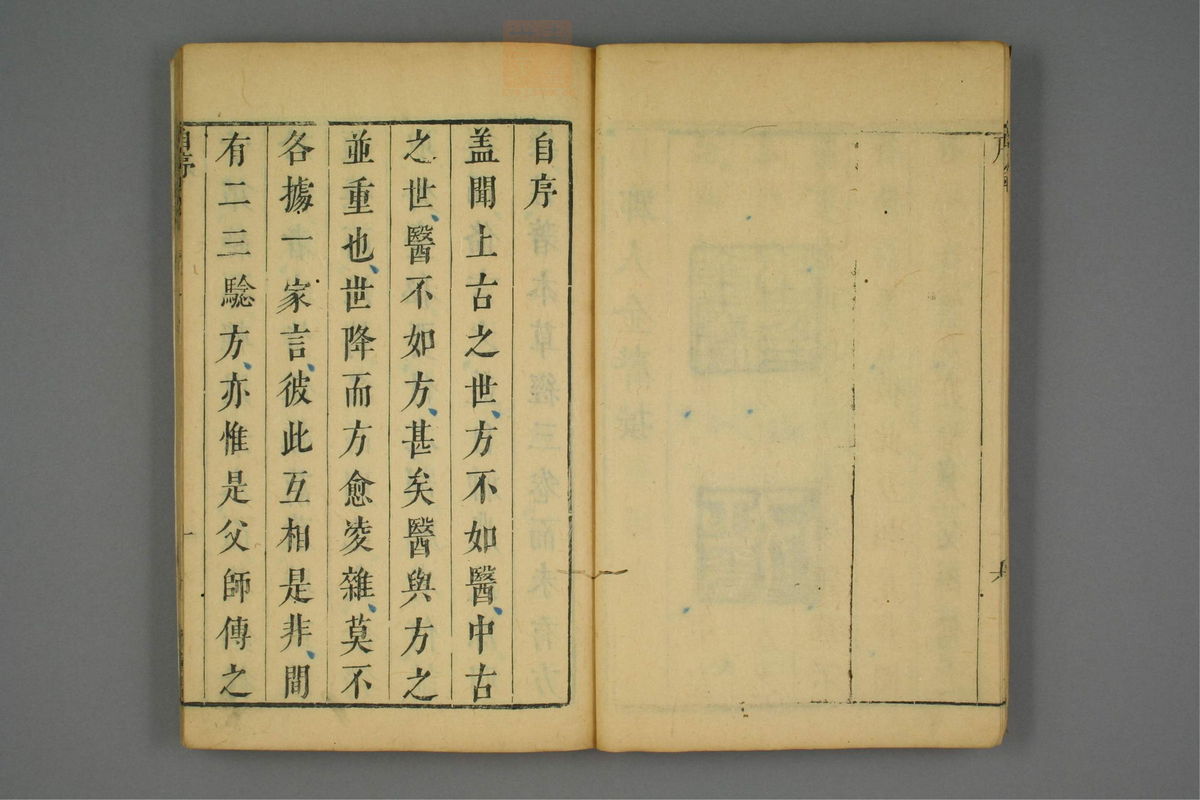 自序
盖聞上古之世、方不如醫、中古
之世、醫不如方、甚矣醫與方之
並重也、世降而方愈淩雜、莫不
各據一家言、彼此互相是非、間
有二三騐方、亦惟是父師傳之
自序